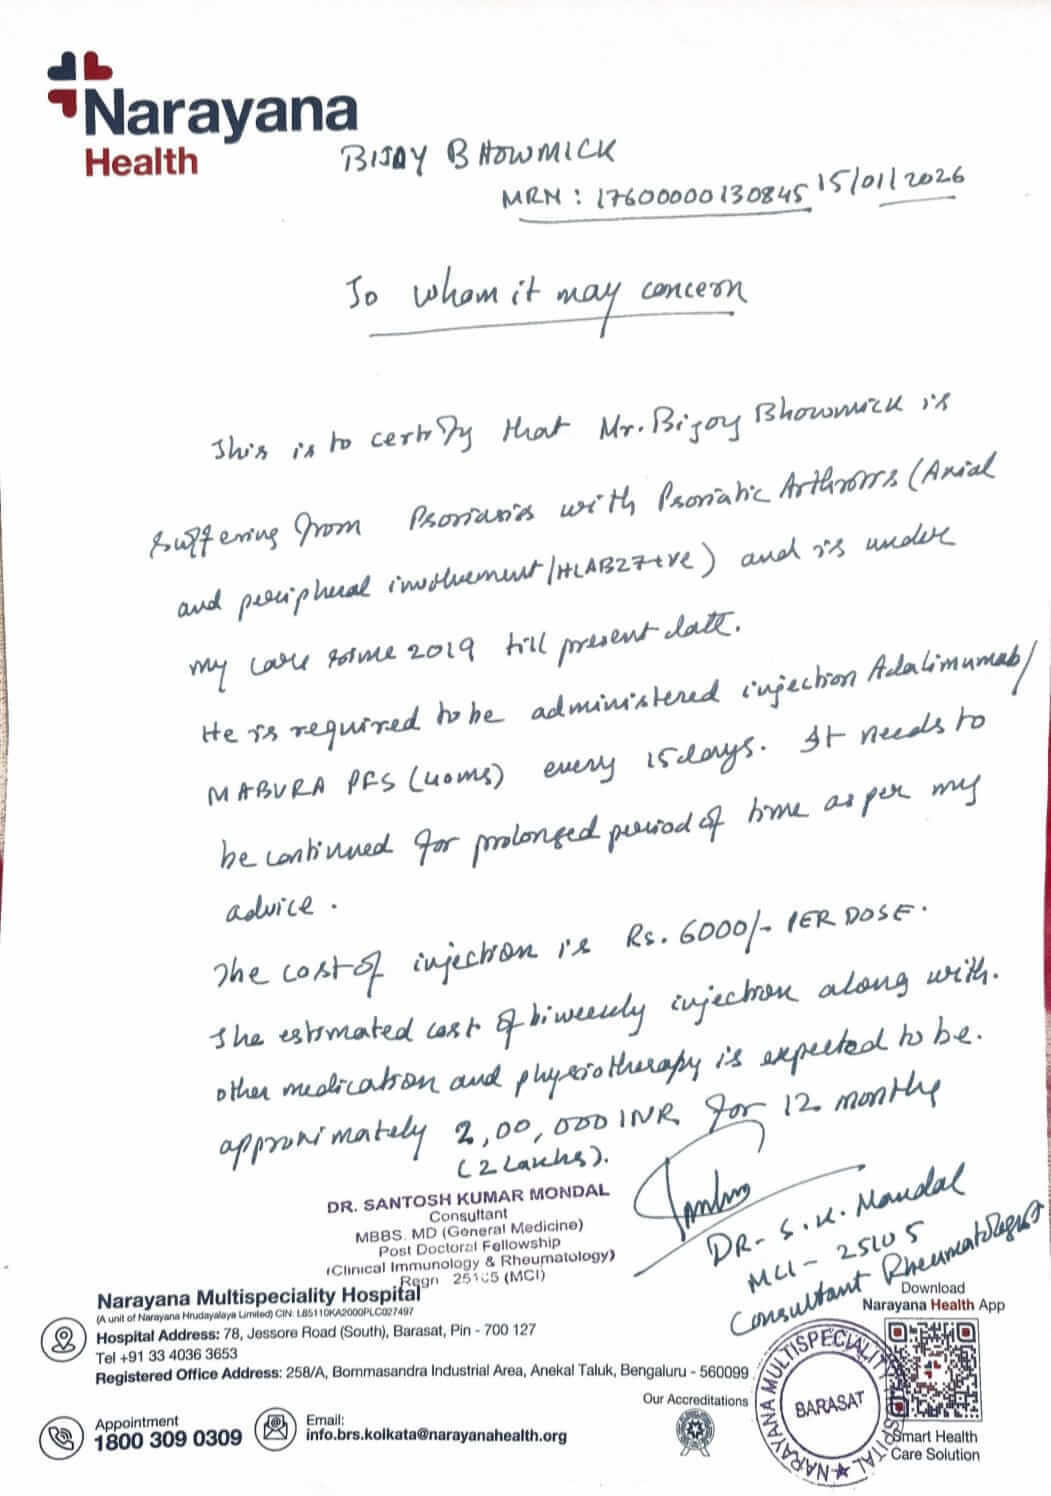 Narayana
Health
BIJAY BHOWMICK
MRN : 17600000130845 15/01/2026
To whom it may concern
This is to certify that Mr. Bijoy Bhowmick is
suffering from Psoriasis with Psoriatic Arthrosis (Axial
and peripheral involvement/HLAB27+ve) and is under
my care since 2019 till present date.
He is required to be administered injection Adalimumab/
MABURA PFS (40mg) every 15 days. It needs to
be continued for prolonged period of time as per my
advice.
The cost of injection is Rs. 6000/- PER DOSE.
The estimated cost of biweekly injection along with.
other medication and physiotherapy is expected to be.
approximately 2,00,000 INR for 12 months
(2 Lakhs).
DR. SANTOSH KUMAR MONDAL
Consultant
MBBS. MD (General Medicine)
Post Doctoral Fellowship
(Clinical Immunology & Rheumatology)
Regn (MCI)
DR- S. K. Mondal
MCI -
Consultant Rheumatologist
Narayana Multispeciality Hospital
(A unit of Narayana Hrudayalaya Limited) CIN: L85110KA2000PLC027497
Hospital Address: 78, Jessore Road (South), Barasat, Pin - 700 127
Tel +91 33 4036 3653
Registered Office Address: 258/A, Bommasandra Industrial Area, Anekal Taluk, Bengaluru - 560099
Appointment
1800 309 0309
Email:
info.brs.kolkata@narayanahealth.org
Our Accreditations
Download
Narayana Health App
Smart Health
Care Solution
NARAYANA MULTISPECIALITY HOSPITAL
BARASAT